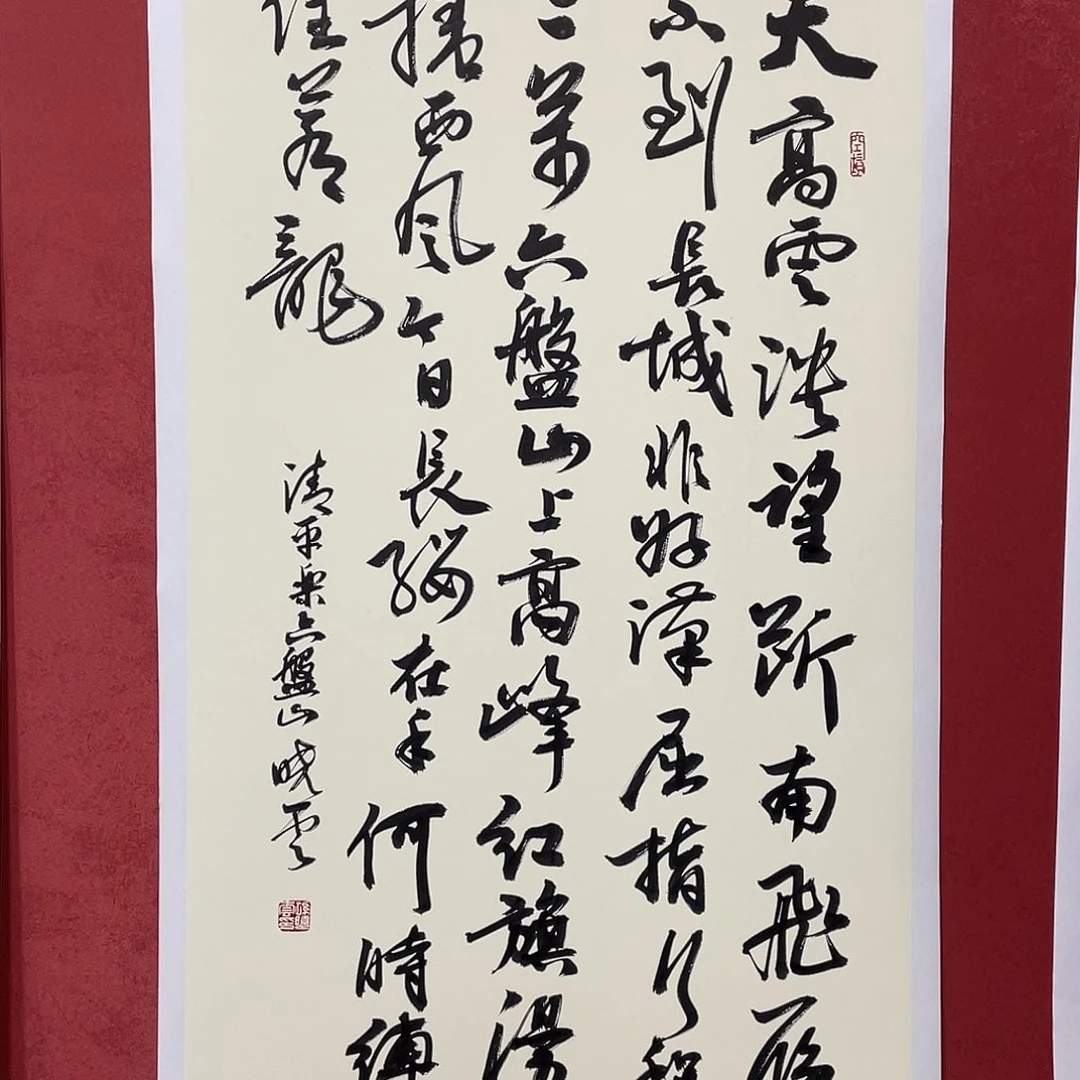 天高雲淡望斷南飛雁
不到長城非好漢屈指行程
二萬六盤山上高峰紅旗漫
捲西風今日長纓在手何時縛
住蒼龍
清平樂六盤山 曉雲